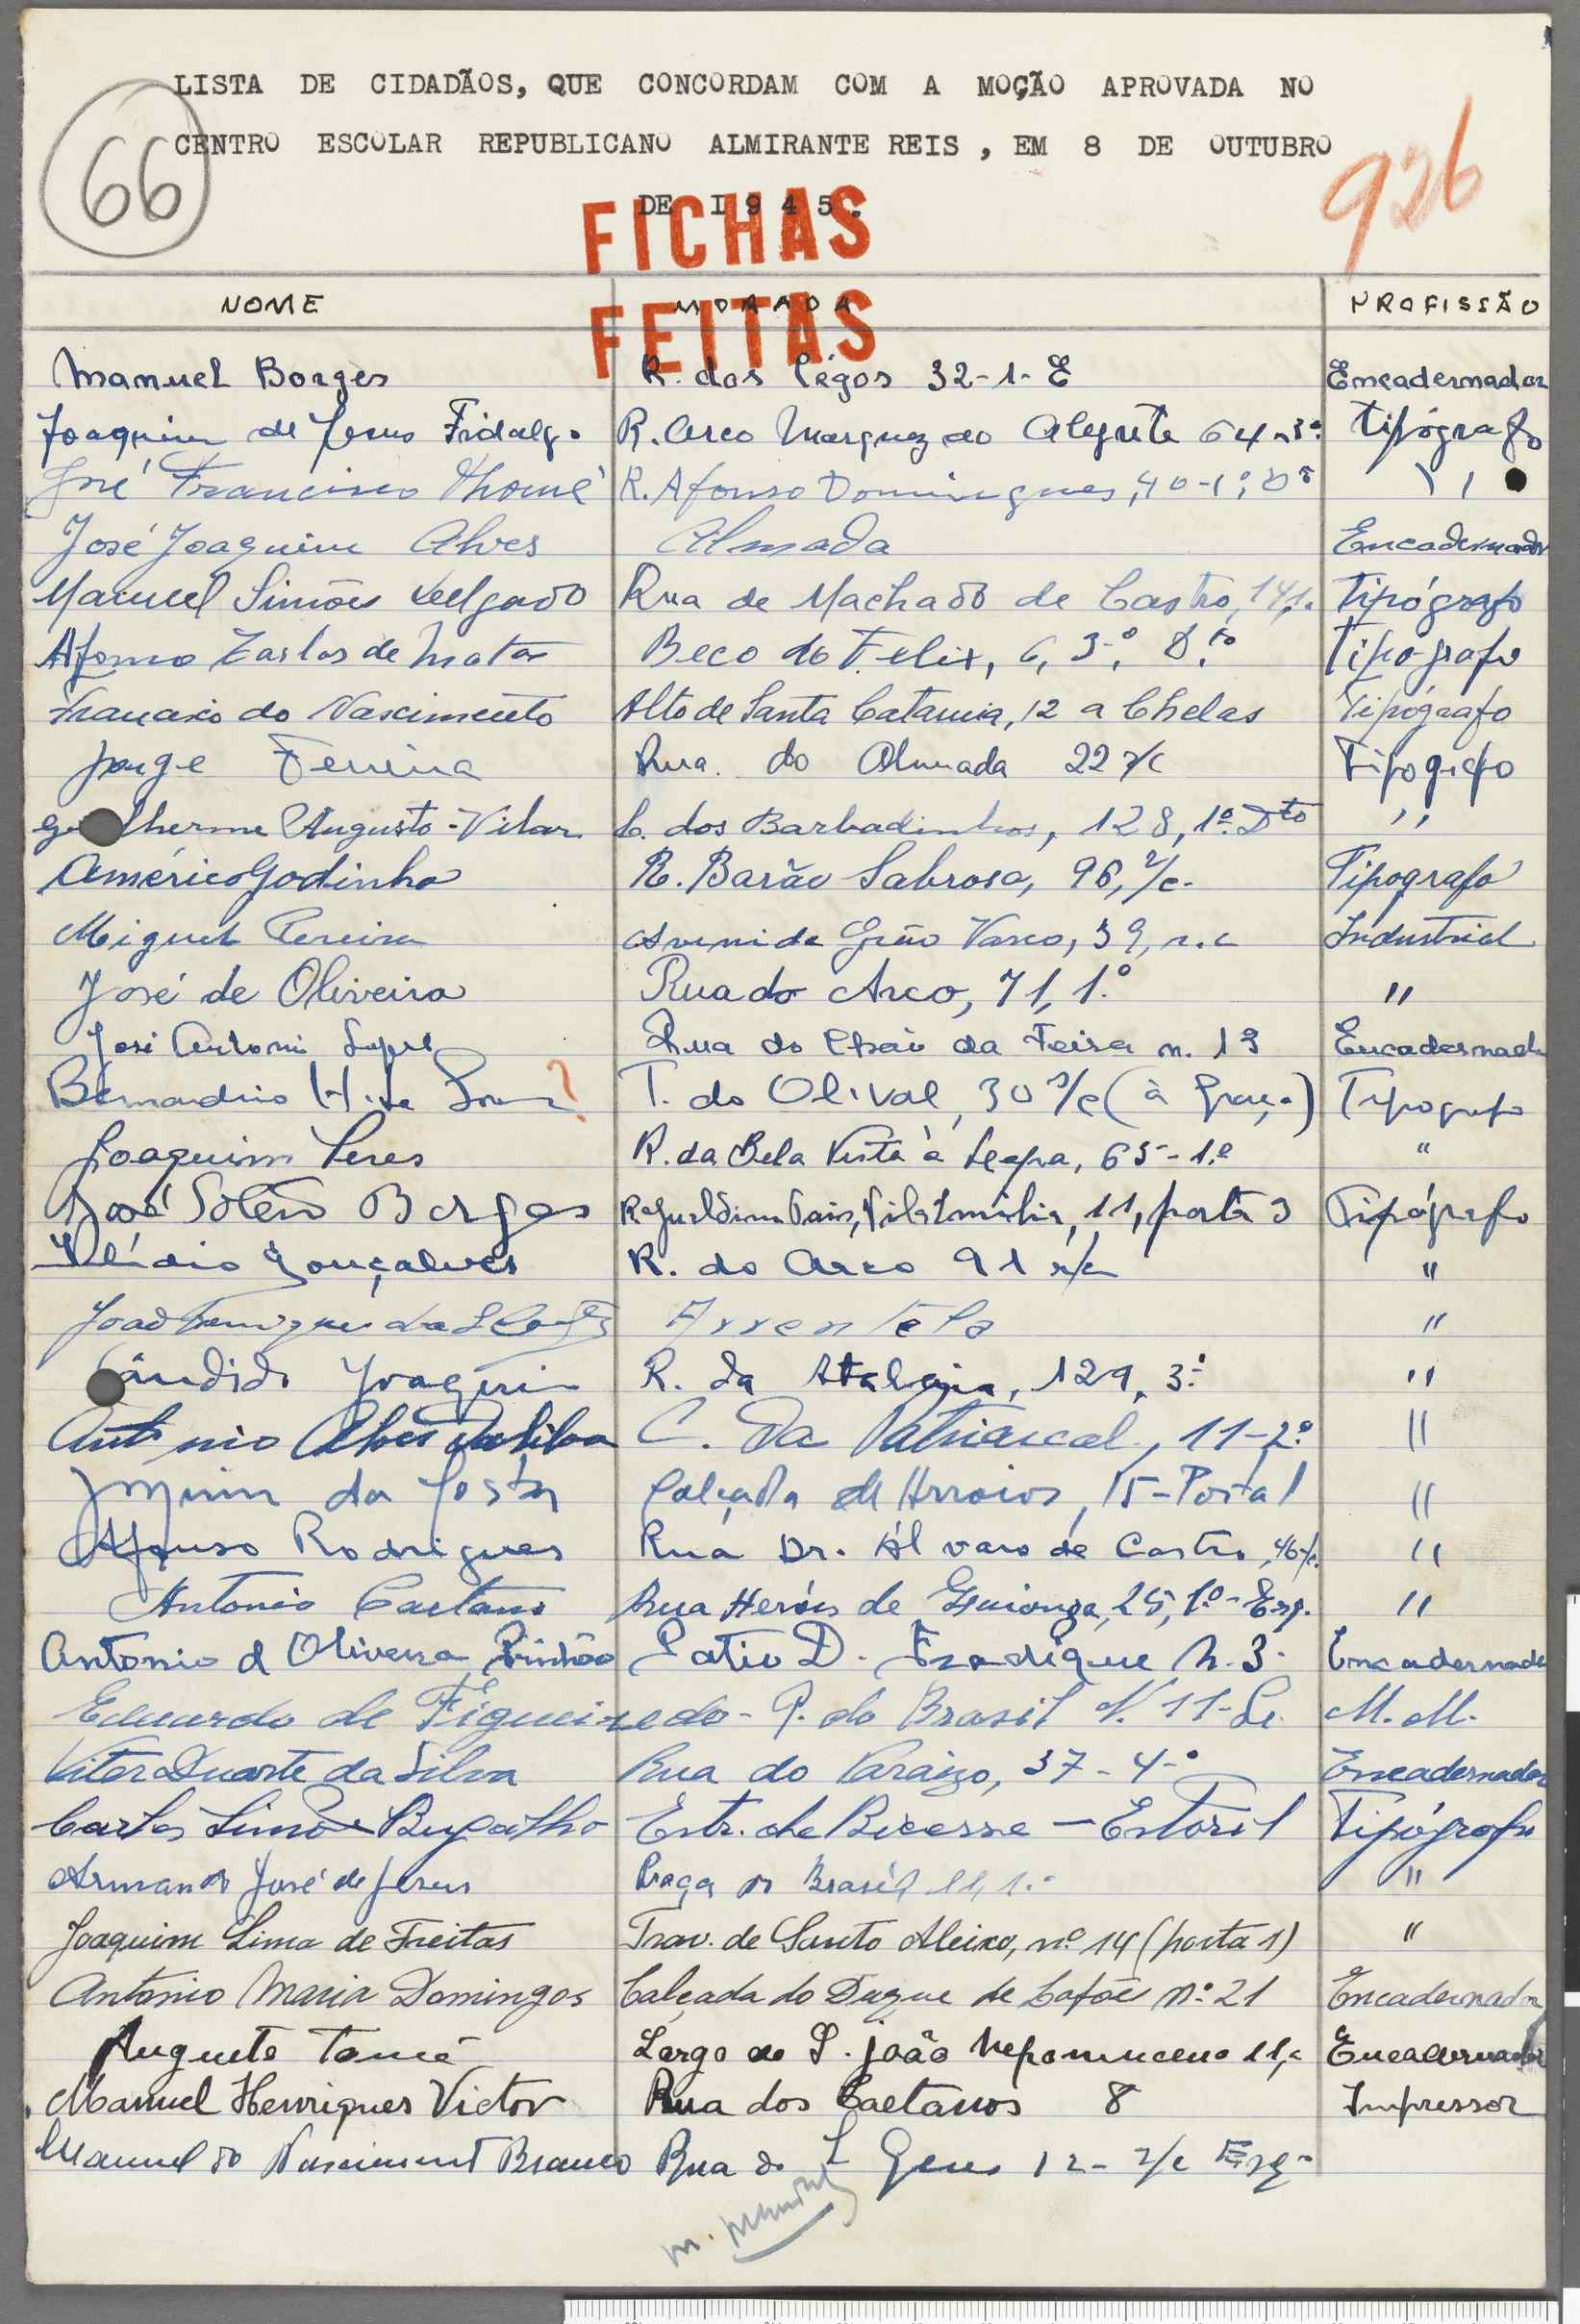 LISTA DE CIDADÃOS, QUE CONCORDAM COM A MOÇÃO APROVADA NO
CENTRO ESCOLAR REPUBLICANO ALMIRANTE REIS, EM 8 DE OUTUBRO
DE I945.
66
926
FICHAS
FEITAS
NOME MORADA PROFISSÃO
Manuel Borges R. dos Cégos 32-1-E Encadernador
Joaquim de Jesus Fidalgo R. Arco Marquez do Alegrete 64-3º Tipógrafo
José Francisco Thomé R. Afonso Domingues, 40-1º, Dº ,,
José Joaquim Alves Almada Encadernador
Manuel Simões Delgado Rua de Machado de Castro, Tipógrafo
Afonso Carlos de Matos Beco do Felix, 6, 3º, D.to Tipografo
Francisco do Nascimento Alto de Santa Catarina, 12 a Chelas Tipógrafo
Jorge Ferreira Rua do Almada 22 r/c Tipografo
Guilherme Augusto Vilar C. dos Barbadinhos, 128, 1º Dto ,,
Américo Godinho R. Barão Sabrosa, 96, r/c. Tipografo
Miguel Pereira Avenida Grão Vasco, 39, r.c Industrial
José de Oliveira Rua do Arco, 71, 1.º "
José Antonio Lopes Rua do Chão da Feira n. 19 Encadernad
Bernardino H. de ? T. do Olival, 30 r/c (à Graça) Tipografo
Joaquim Peres R. da Bela Vista à Lapa, 65-1.º "
José Sotero Borges R. Gualdim Pais, Vila Emilia, 11, porta 3 Tipógrafo
Gonçalves R. do Arco 91 r/c "
João da Arrentela "
Cândido Joaquim R. da Atalaia, 129, 3º "
António Alves da Silva C. da Patriarcal, 11-2º "
da Costa Calçada de Arroios, 15-Portal "
Afonso Rodrigues Rua Dr. Alvaro de Castro, "
Antonio Caetano Rua Heróis de Quionga, 25, 1º-Esq. "
Antonio d Oliveira Pinhão Patio D. Fradique N. 3 Encadernado
Eduardo de Figueiredo - P. do Brasil N. 11- M. M.
Vitor Duarte da Silva Rua do Paraizo, 37-4º Encadernador
Carlos Simões Bugalho Estr. de Bicesse - Estoril Tipógrafo
Armando José de Jesus Praça do Brasil 11, 1.º "
Joaquim Lima de Freitas Trav. de Santo Aleixo, nº 14 (porta 1) "
Antonio Maria Domingos Calçada do Duque de Lafões Nº 21 Encadernador
Augusto Tomé Largo de S. João Nepomuceno 11, Encadernador
Manuel Henriques Victor Rua dos Caetanos 8 Impressor
Manuel do Nascimento Branco Rua de S Gens 12- r/c Esq.